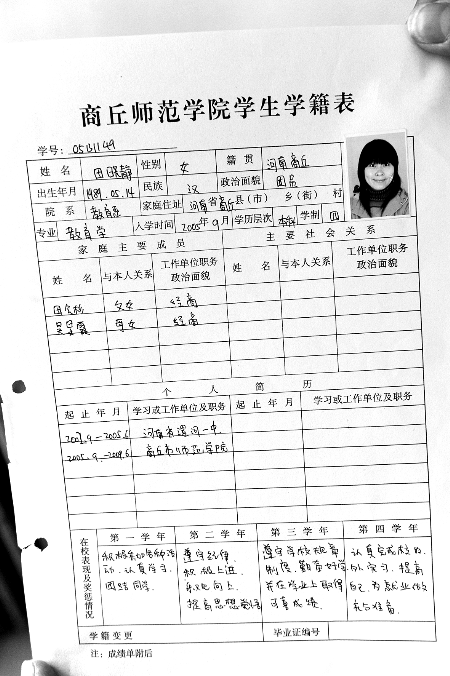 商丘师范学院学生学籍表
学号：05131149
姓名 田晓静 性别 女 籍贯 河南商丘
出生年月 1989.05.14 民族 汉 政治面貌 团员
院系 教育系 家庭住址 河南省商丘县（市） 乡（街） 村
专业 教育学 入学时间 2005年9月 学历层次 本科 学制 四
家庭主要成员 主要社会关系
姓名 与本人关系 工作单位职务政治面貌 姓名 与本人关系 工作单位职务政治面貌
父女 经商
母女 经商
个人简历
起止年月 学习或工作单位及职务 起止年月 学习或工作单位及职务
河南省 一中
2005.9-2009.6 商丘市师范学院
在校表现及奖惩情况
第一学年 第二学年 第三学年 第四学年
积极参加各种活动，认真学习，团结同学。
遵守纪律 积极上进 积极向上 提高思想觉悟
遵守学校规章制度，勤奋好学 并在学业上取得可喜成绩。
认真完成校内外实习，提高自己，为就业做充分准备。
学籍变更 毕业证编号
注：成绩单附后